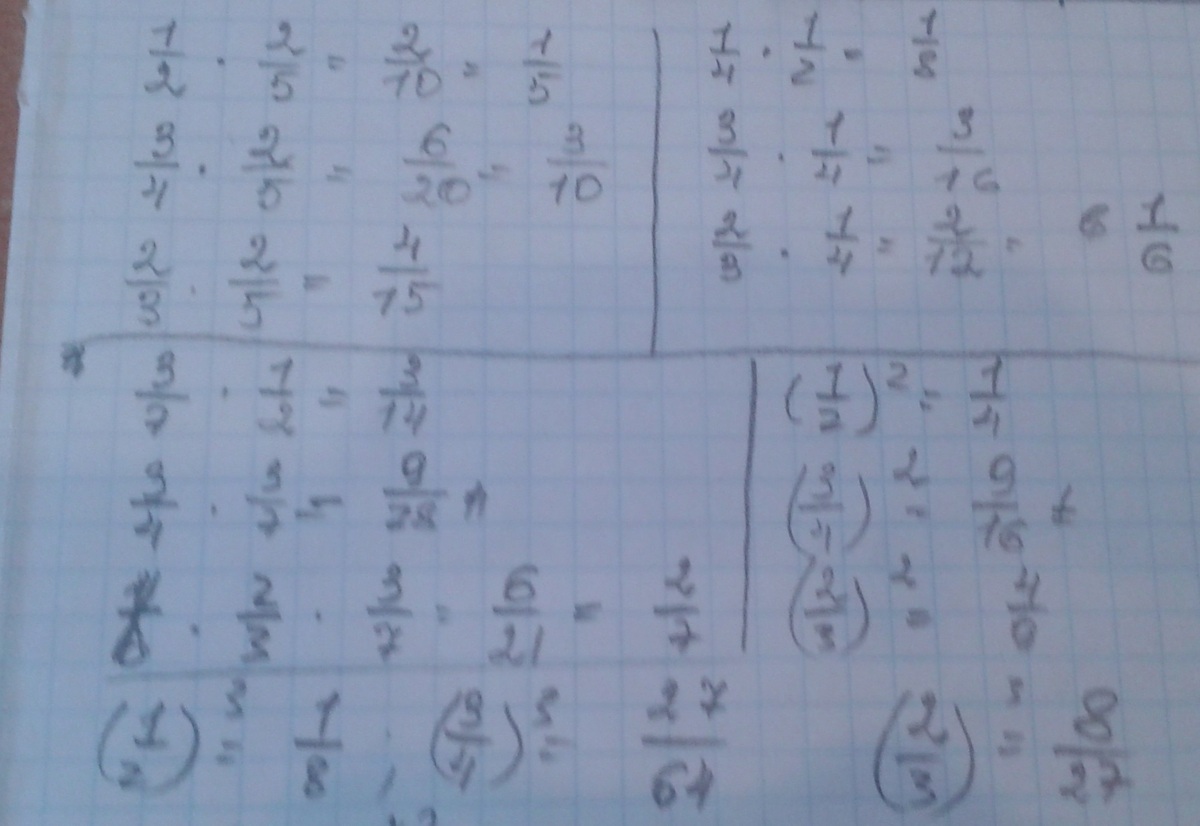 1/2 · 2/5 = 2/10 = 1/5
3/4 · 2/5 = 6/20 = 3/10
2/3 · 2/5 = 4/15
1/4 · 1/2 = 1/8
3/4 · 1/4 = 3/16
2/3 · 1/4 = 2/12 = 6 1/6
3/7 · 1/2 = 3/14
3/4 · 3/7 = 9/28
2/3 · 3/7 = 6/21 = 2/7
(1/2)² = 1/4
(3/4)² = 9/16
(2/3)² = 4/9
(1/2)³ = 1/8 ; (3/4)³ = 27/64 (2/3)³ = 8/27